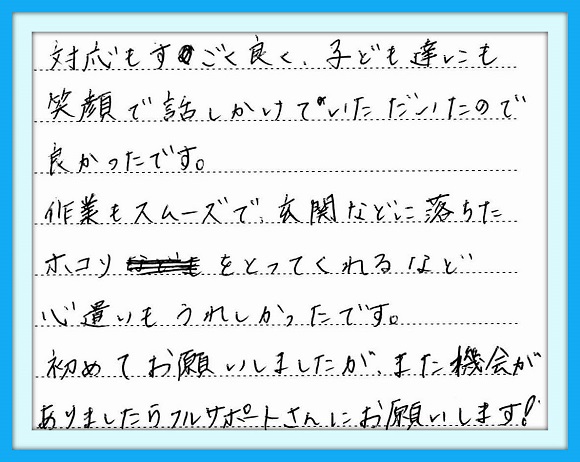 対応もすごく良く、子ども達にも
笑顔で話しかけていただいたので
良かったです。
作業もスムーズで、玄関などに落ちた
ホコリをとってくれるなど
心遣いもうれしかったです。
初めてお願いしましたが、また機会が
ありましたらフルサポートさんにお願いします!